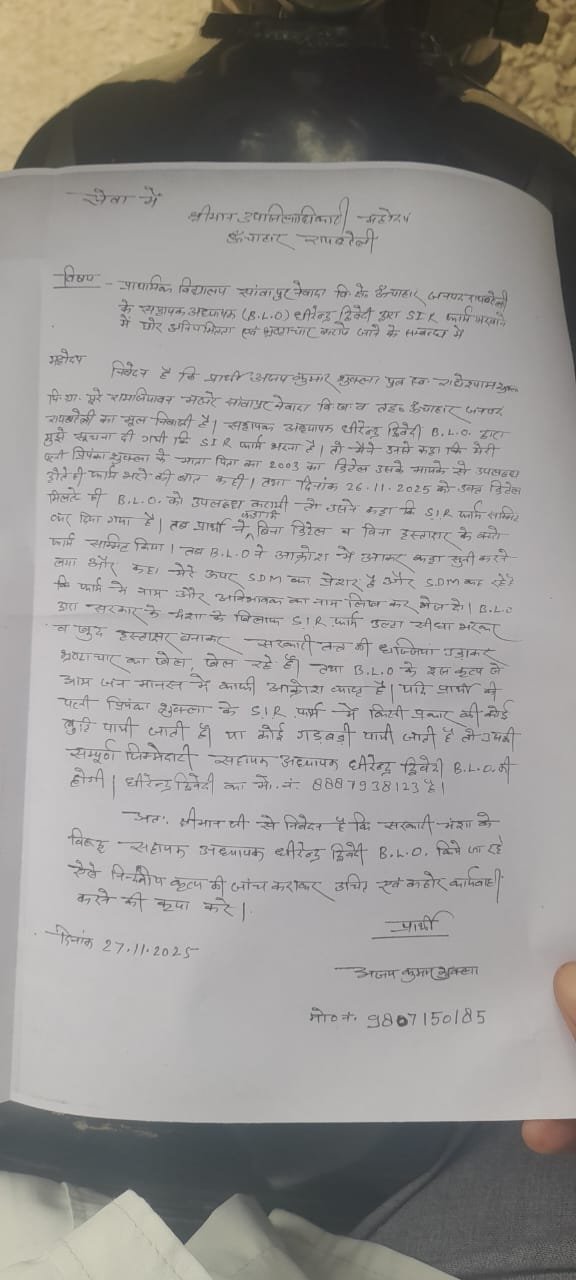 सेवा में
श्रीमान उपजिलाधिकारी महोदय
ऊँचाहार रायबरेली
विषय - प्राथमिक विद्यालय सांवापुर नेवादा वि. क्षे. ऊँचाहार जनपद रायबरेली
के सहायक अध्यापक (B.L.O) धीरेन्द्र द्विवेदी द्वारा S I R फार्म भरवाने
में घोर अनियमितता एवं भ्रष्टाचार करने जाने के सम्बन्ध में
महोदय
निवेदन है कि प्रार्थी अजय कुमार शुक्ला पुत्र स्व. राधेश्याम शुक्ल
नि. ग्रा. पूरे रामजियावन मजरे सांवापुर नेवादा वि. ख. व तह. ऊँचाहार जनपद
रायबरेली का मूल निवासी है। सहायक अध्यापक धीरेन्द्र द्विवेदी B.L.O. द्वारा
मुझे सूचना दी गयी कि S I R फार्म भरना है। तो मैंने उनसे कहा कि मेरी
पत्नी प्रियंका शुक्ला के माता पिता का 2003 का डिटेल उसके मायके से उपलब्ध
होते ही फार्म भरने की बात कही। तथा दिनांक 26.11.2025 को उक्त डिटेल
मिलते ही B.L.O. को उपलब्ध करायी तो उसने कहा कि S.I.R फार्म सम्मिट
कर दिया गया है। तब प्रार्थी ने कहा कि बिना डिटेल व बिना हस्ताक्षर के क्यों
फार्म सम्मिट किया। तब B.L.O ने आक्रोश में आकर कहा सुनी करने
लगा और कहा मेरे ऊपर SDM का प्रेशर है और SDM कह रहे हैं
कि फार्म में नाम और अभिभावक का नाम लिख कर भेज दो। B.L.O
द्वारा सरकार के मंशा के खिलाफ S.I.R फार्म उल्टा सीधा भरकर
व खुद हस्ताक्षर बनाकर सरकारी तन्त्र की धज्जिया उड़ाकर
भ्रष्टाचार का खेल, खेल रहे हैं। तथा B.L.O के इस कृत्य से
आम जन मानस में काफी आक्रोश व्याप्त है। यदि प्रार्थी की
पत्नी प्रियंका शुक्ला के S.I.R. फार्म में किसी प्रकार की कोई
त्रुटि पायी जाती है। या कोई गड़बड़ी पायी जाती है तो उसकी
सम्पूर्ण जिम्मेदारी सहायक अध्यापक धीरेन्द्र द्विवेदी B.L.O. की
होगी। धीरेन्द्र द्विवेदी का मो. नं. 8887938123 है।
अतः श्रीमान जी से निवेदन है कि सरकारी मंशा के
विरूद्ध सहायक अध्यापक धीरेन्द्र द्विवेदी B.L.O. किये जा रहे
ऐसे निन्दनीय कृत्य की जांच कराकर उचित एवं कठोर कार्यवाही
करने की कृपा करे।
दिनांक 27.11.2025
प्रार्थी
अजय कुमार शुक्ला
मो० नं. 9807150185